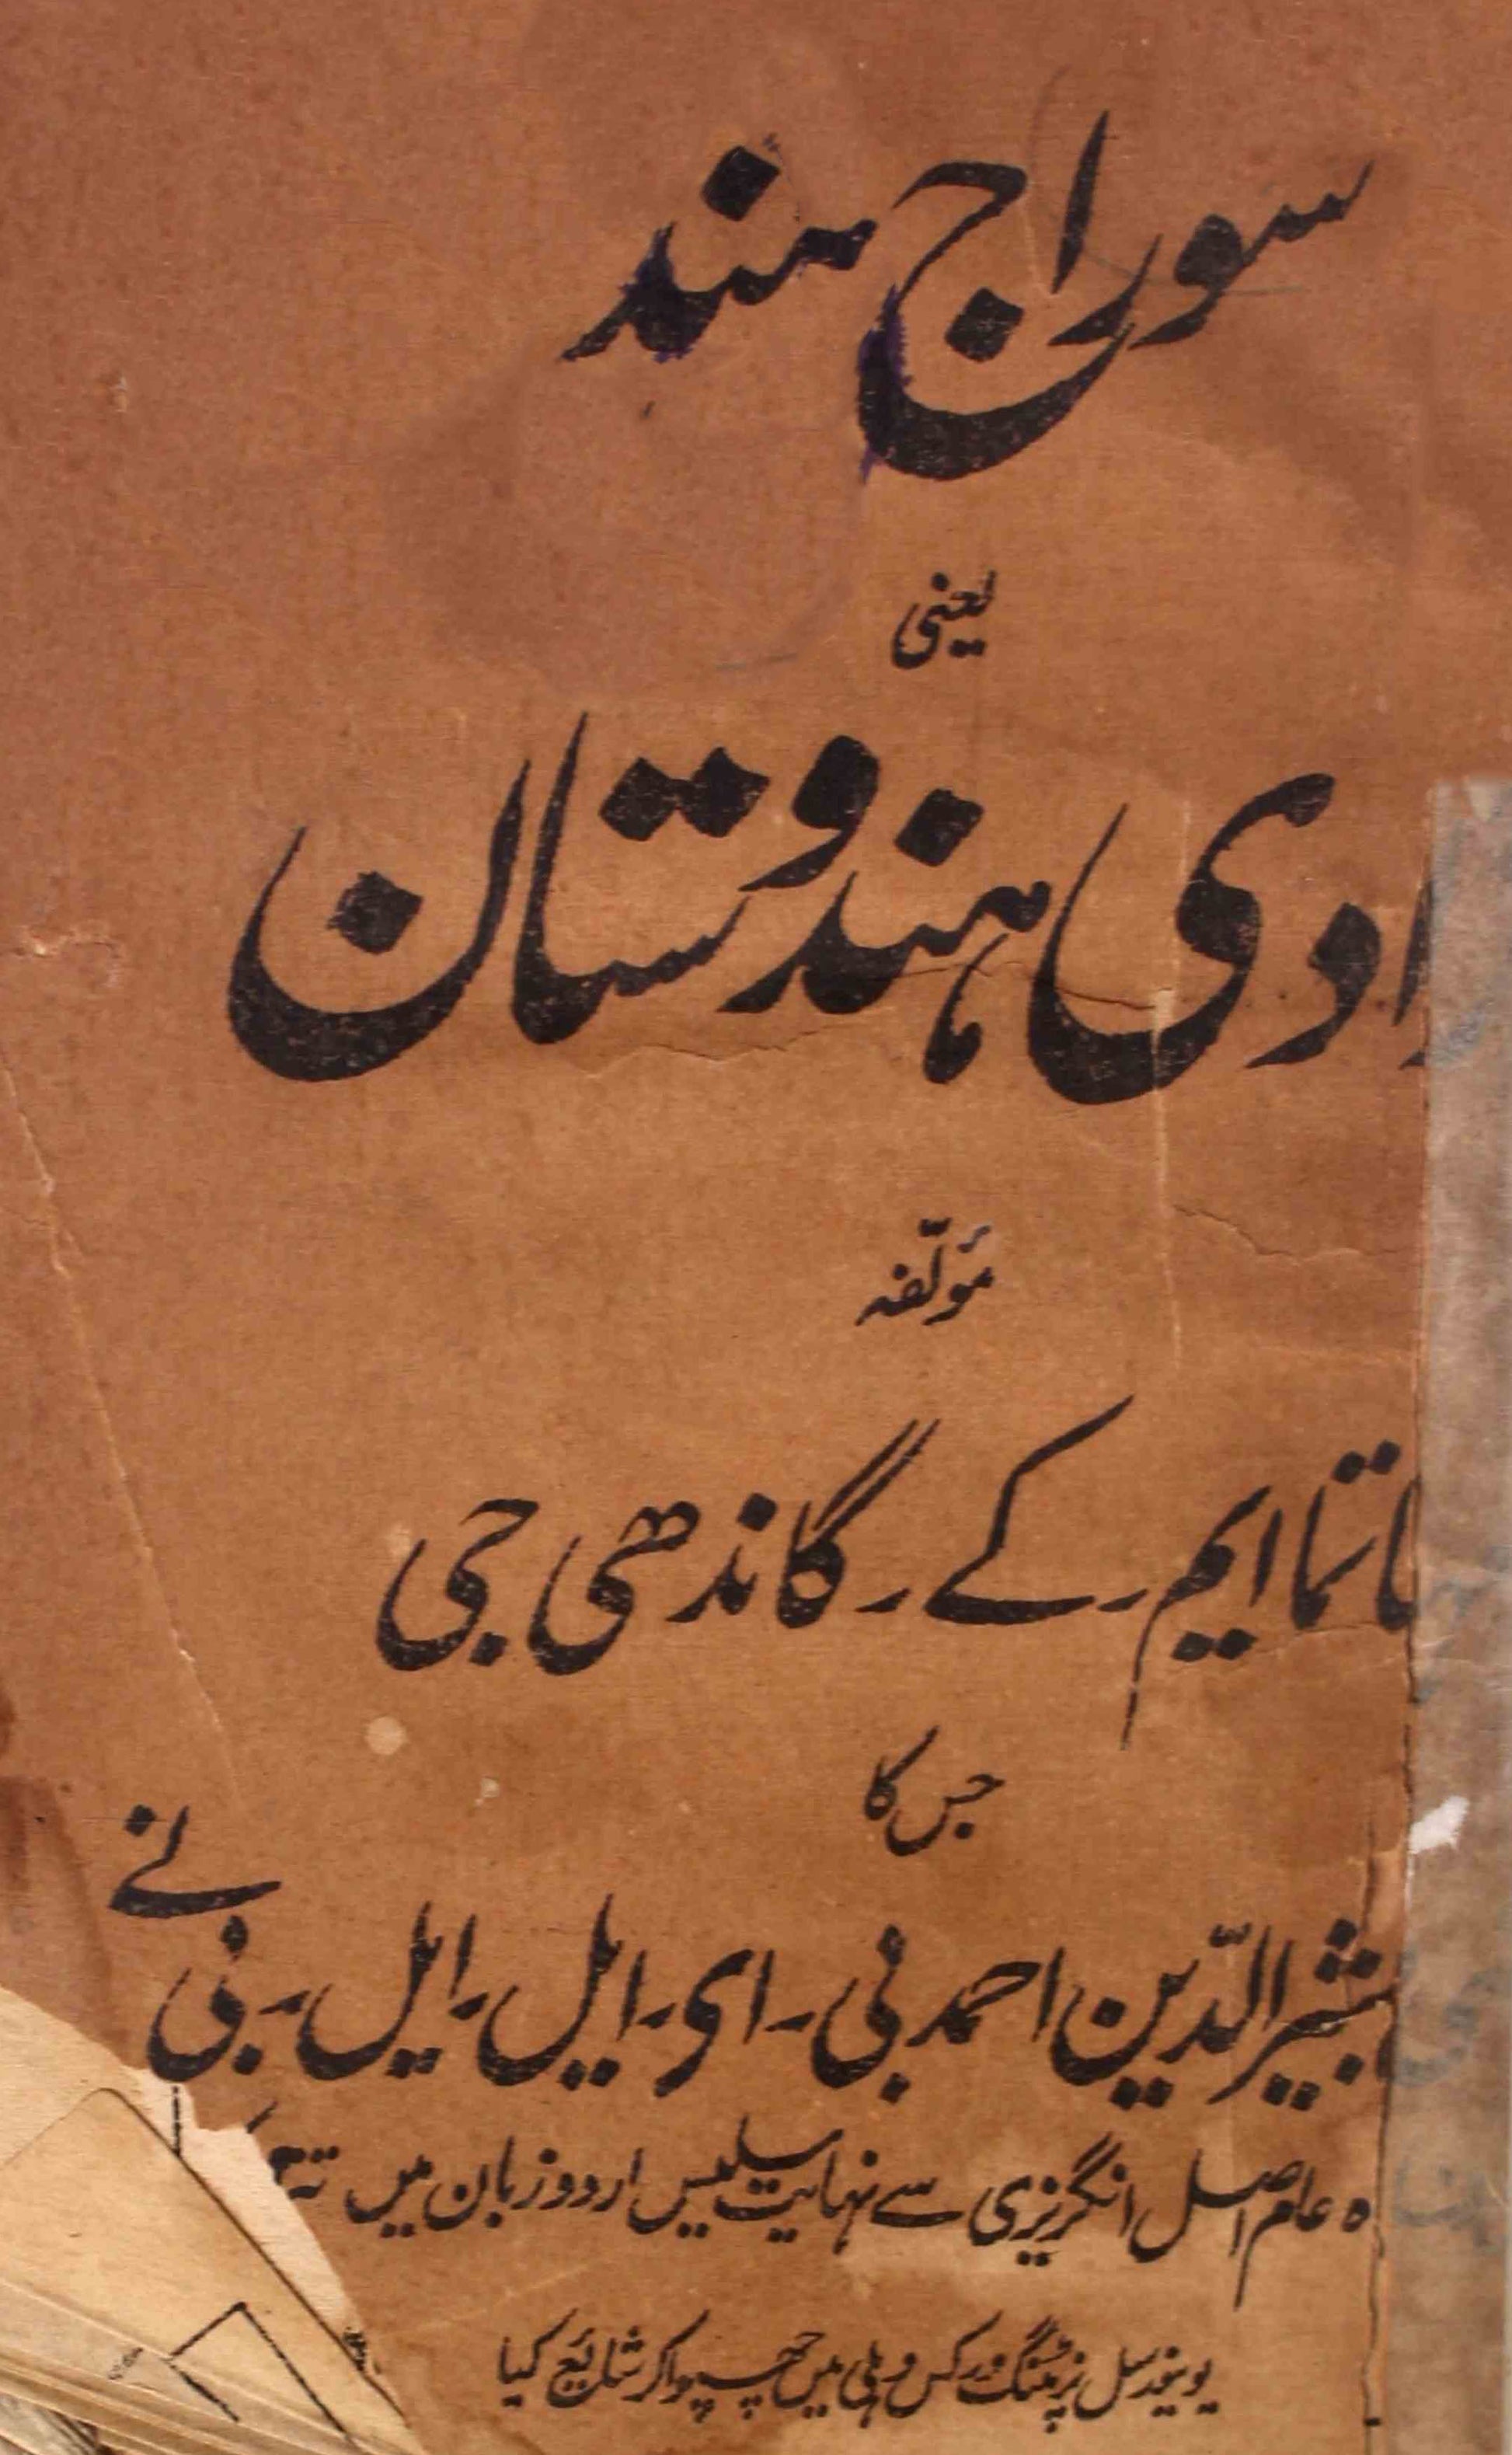 سوراج ہند
یعنی
ادی ہندوستان
مؤلّفہ
اتما ایم۔ کے۔ گاندھی جی
جس کا
بشیر الدّین احمد بی۔ ای۔ ایل۔ ایل۔ بی نے
ہ عام اصل انگریزی سے نہایت سلیس اردو زبان میں
یونیورسل پرنٹنگ ورکس دہلی میں چھپوا کر شائع کیا